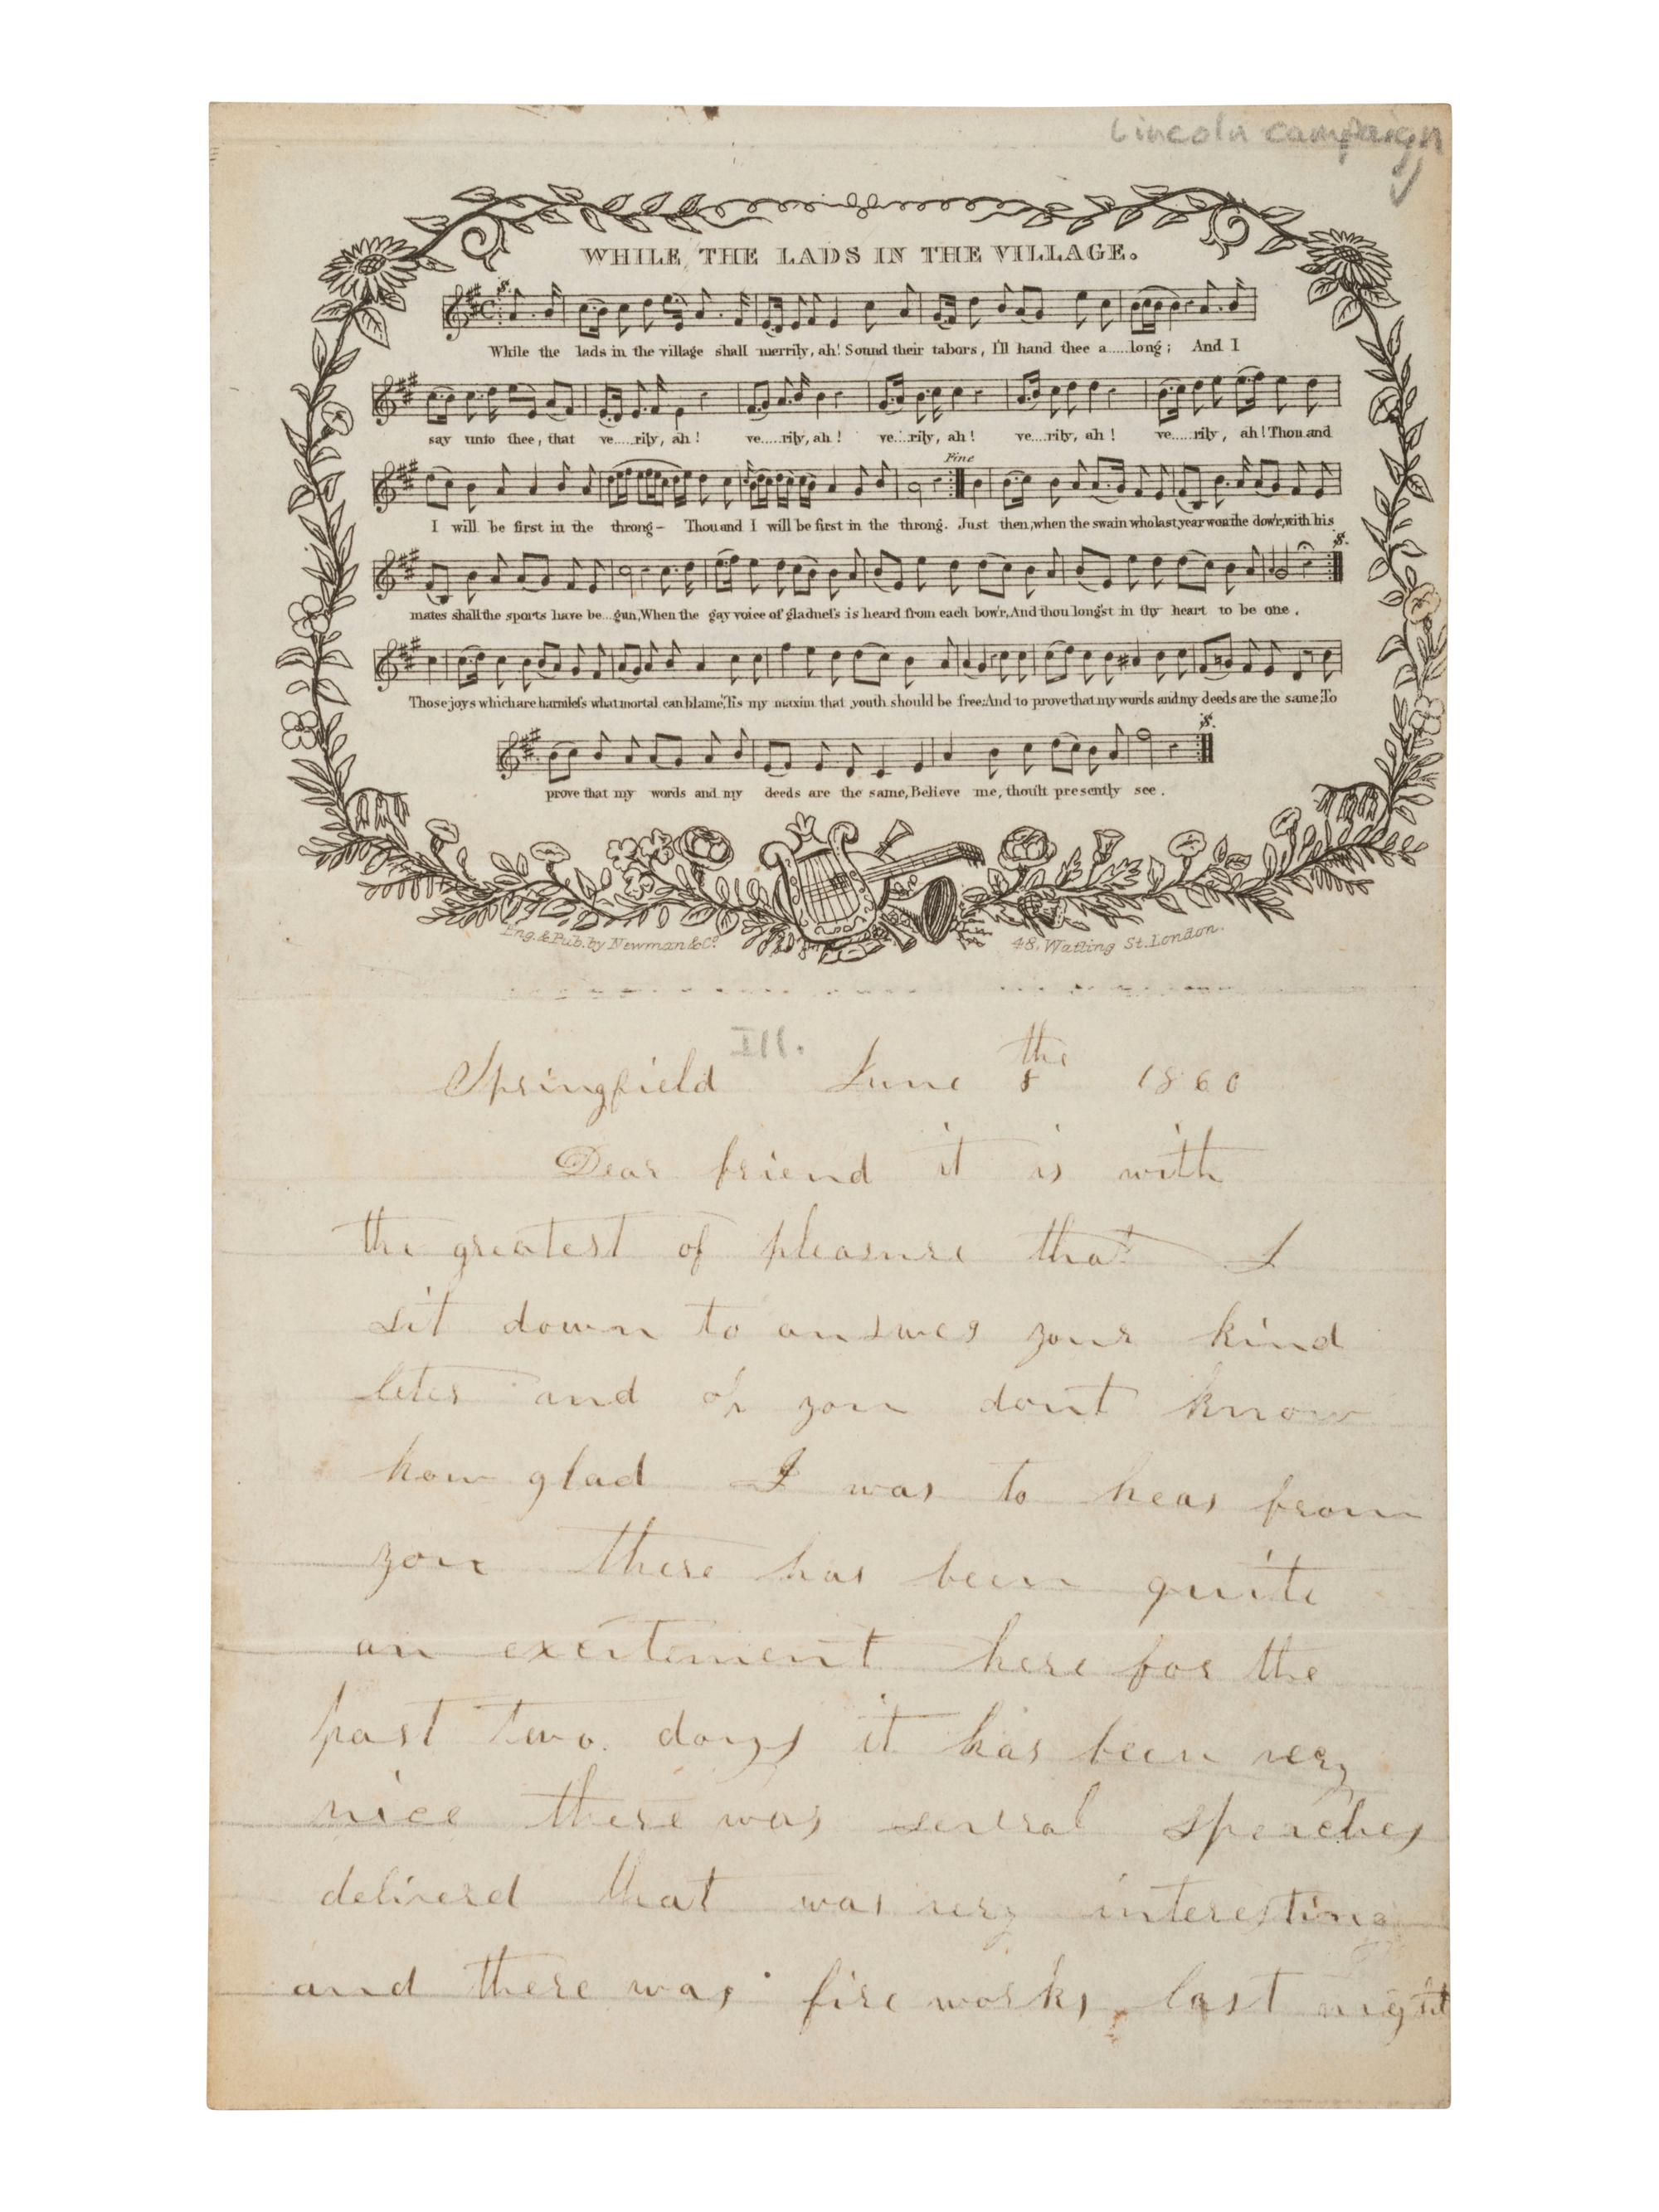 Lincoln campaign
WHILE THE LADS IN THE VILLAGE.
While the lads in the village shall merrily, ah! Sound their tabors, I'll hand thee a.....long; And I
say unto thee, that ve....rily, ah! ve.....rily, ah! ve...rily, ah! ve....rily, ah! ve.....rily, ah! Thou and
Fine
I will be first in the throng- Thou and I will be first in the throng. Just then, when the swain who last year won the dow'r, with his
mates shall the sports have be...gun, When the gay voice of gladneſs is heard from each bow'r, And thou long'st in thy heart to be one.
Those joys which are harmleſs what mortal can blame, 'Tis my maxim that youth should be free; And to prove that my words and my deeds are the same; To
prove that my words and my deeds are the same, Believe me, thou'lt presently see.
Eng. & Pub. by Newman & Co. 48, Watling St. London.
Ill.
Springfield June 8 the 1860
Dear friend it is with
the greatest of pleasure that I
sit down to answer your kind
leter and oh you dont know
how glad I was to hear from
you there has been quite
an exeitement here for the
past two days it has been very
nice there was several speaches
deliverd that was very interesting
and there was fire works last night